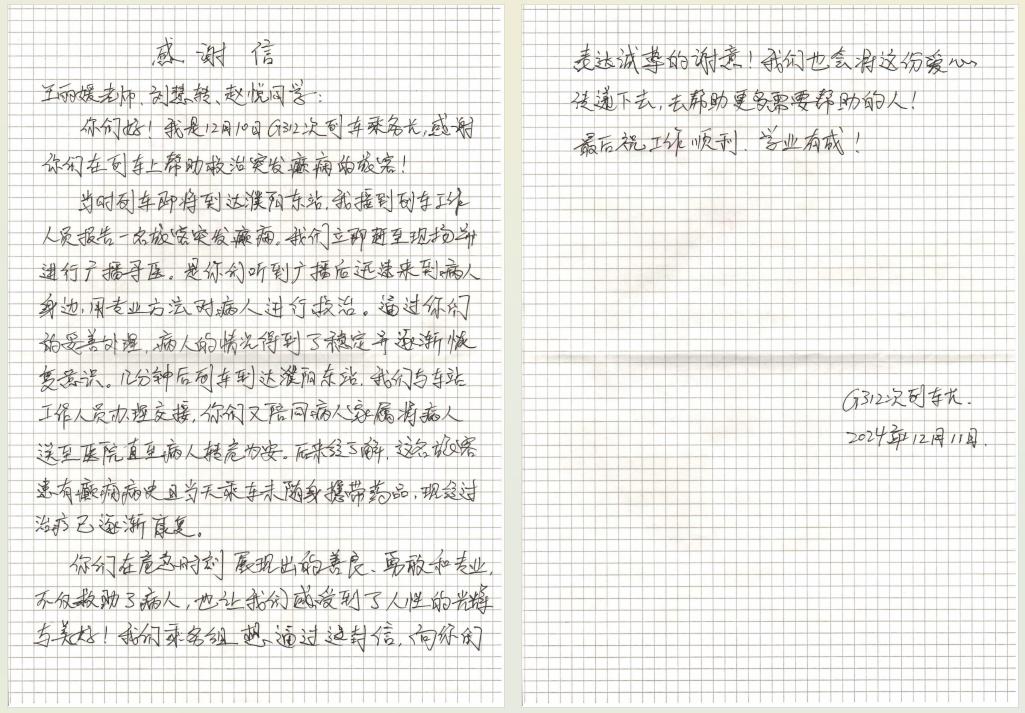 感谢信
王丽媛老师、刘慧转、赵悦同学:
你们好！我是12月10日G312次列车乘务长,感谢
你们在列车上帮助救治突发癫痫的旅客！
当时列车即将到达濮阳东站,我接到列车工作
人员报告一名旅客突发癫痫。我们立即赶至现场并
进行广播寻医。是你们听到广播后迅速来到病人
身边,用专业方法对病人进行救治。通过你们
的妥善处理,病人的情况得到了稳定并逐渐恢
复意识。几分钟后列车到达濮阳东站,我们与车站
工作人员办理交接,你们又陪同病人家属将病人
送至医院直至病人转危为安。后来经了解,这名旅客
患有癫痫病史且当天乘车未随身携带药品,现经过
治疗已逐渐康复。
你们在危急时刻展现出的善良、勇敢和专业,
不仅救助了病人,也让我们感受到了人性的光辉
与美好！我们乘务组想通过这封信,向你们
表达诚挚的谢意！我们也会将这份爱心
传递下去,去帮助更多需要帮助的人！
最后祝工作顺利、学业有成！
G312次列车长.
2024年12月11日.